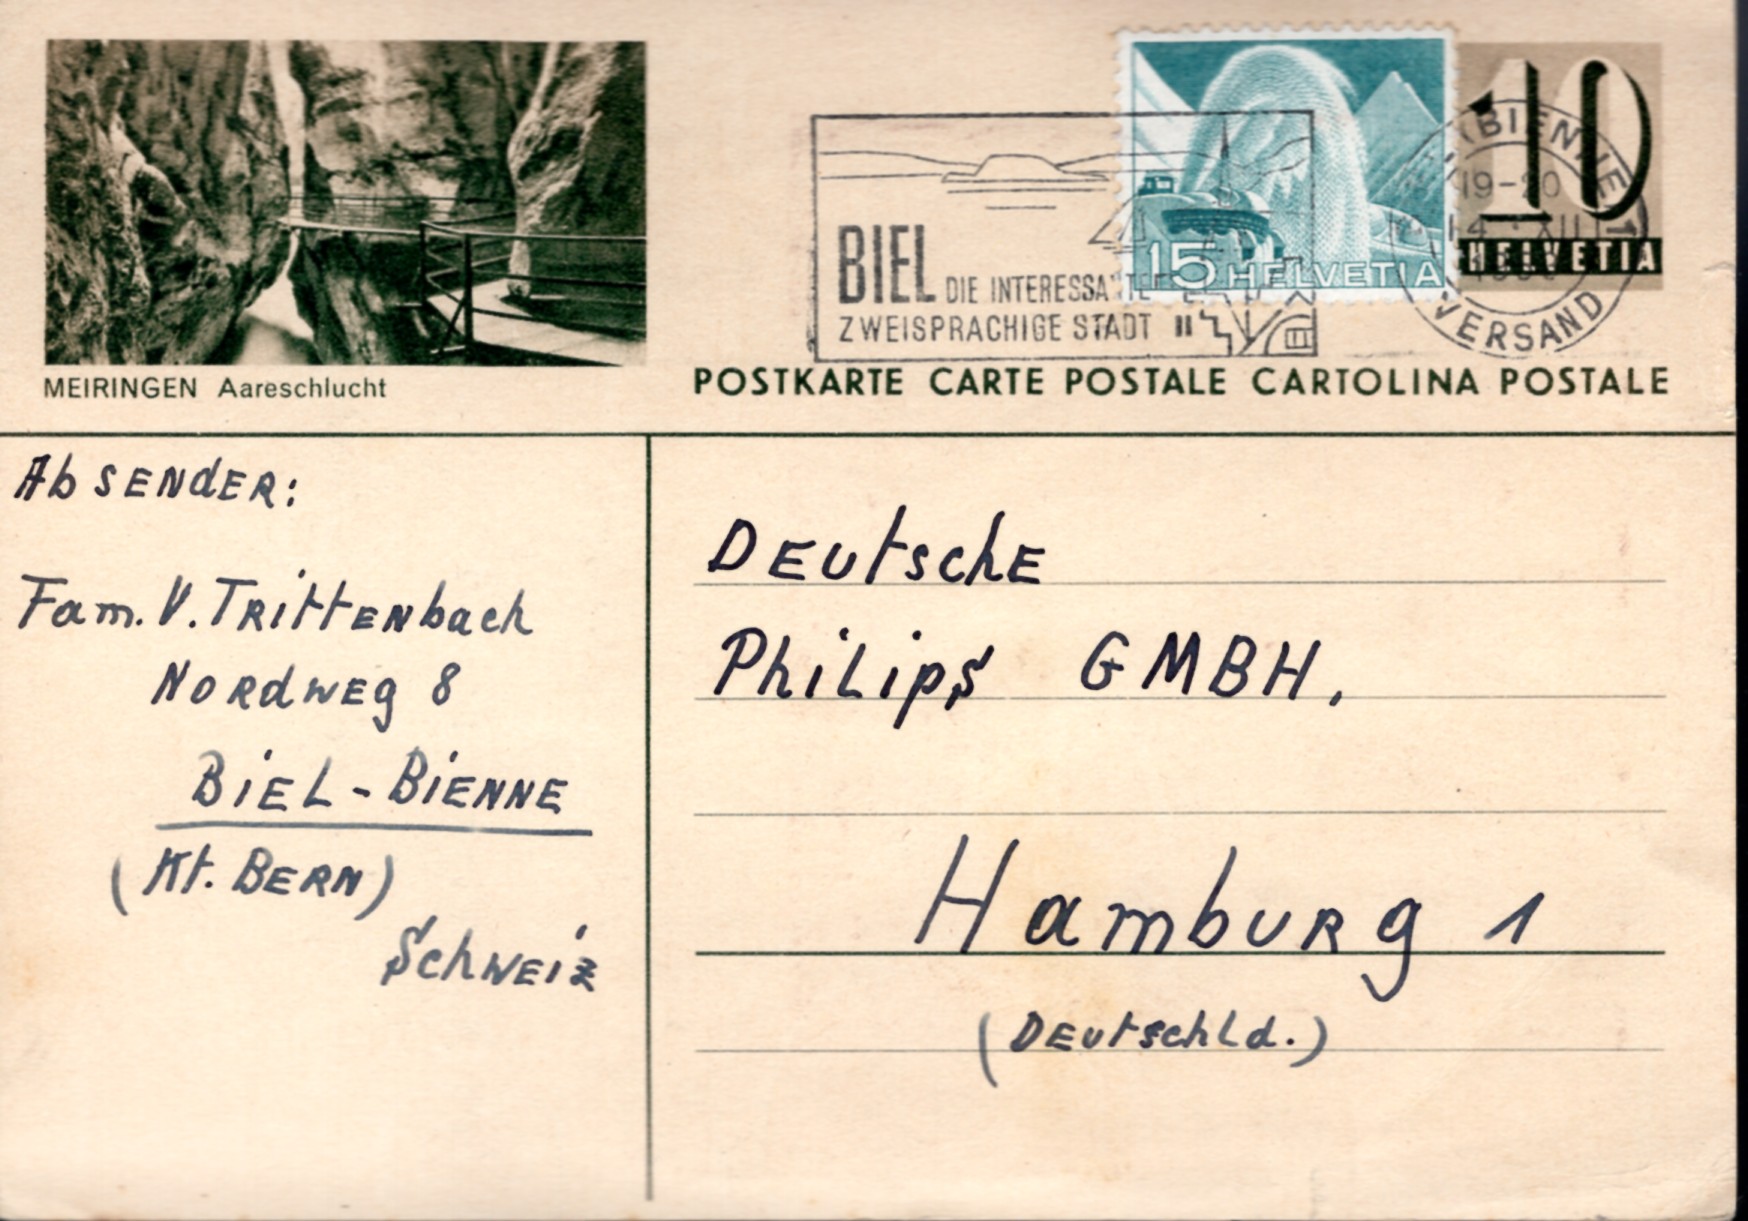 MEIRINGEN Aareschlucht
BIEL DIE INTERESSANTE
ZWEISPRACHIGE STADT
15 HELVETIA
10
HELVETIA
BIENNE 1
19-20
XII
VERSAND
POSTKARTE CARTE POSTALE CARTOLINA POSTALE
Absender:
Fam. V. Trittenbach
Nordweg 8
Biel-Bienne
(Kt. Bern)
Schweiz
Deutsche
Philips GMBH,
Hamburg 1
(Deutschld.)